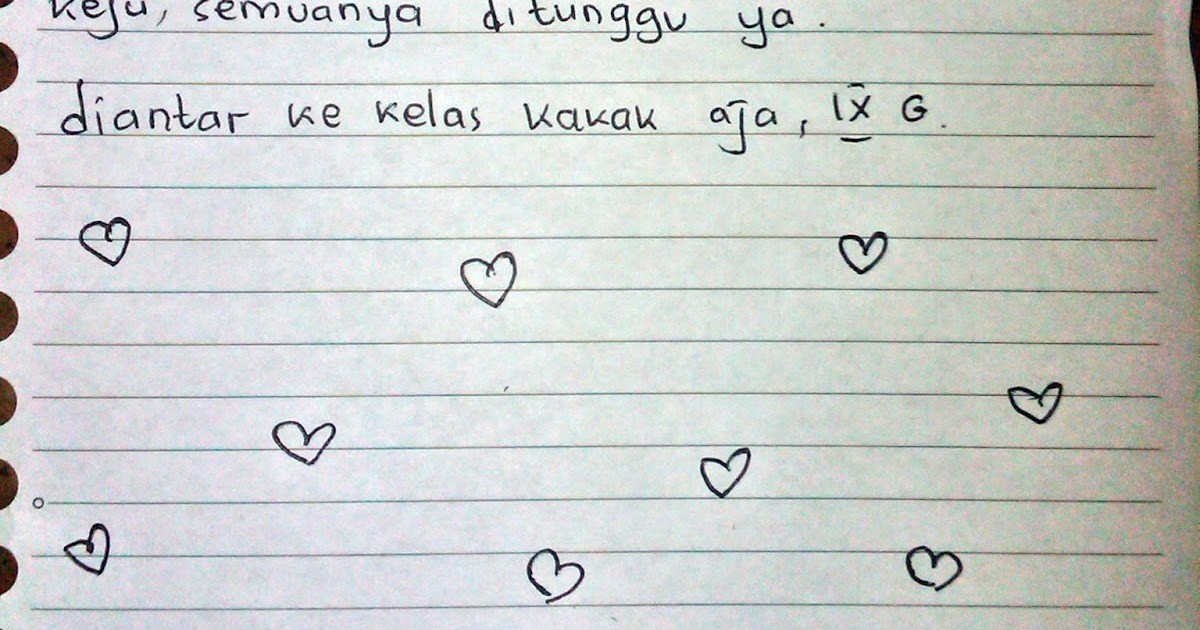 keju, semuanya ditunggu ya.
diantar ke kelas kakak aja, IX G.